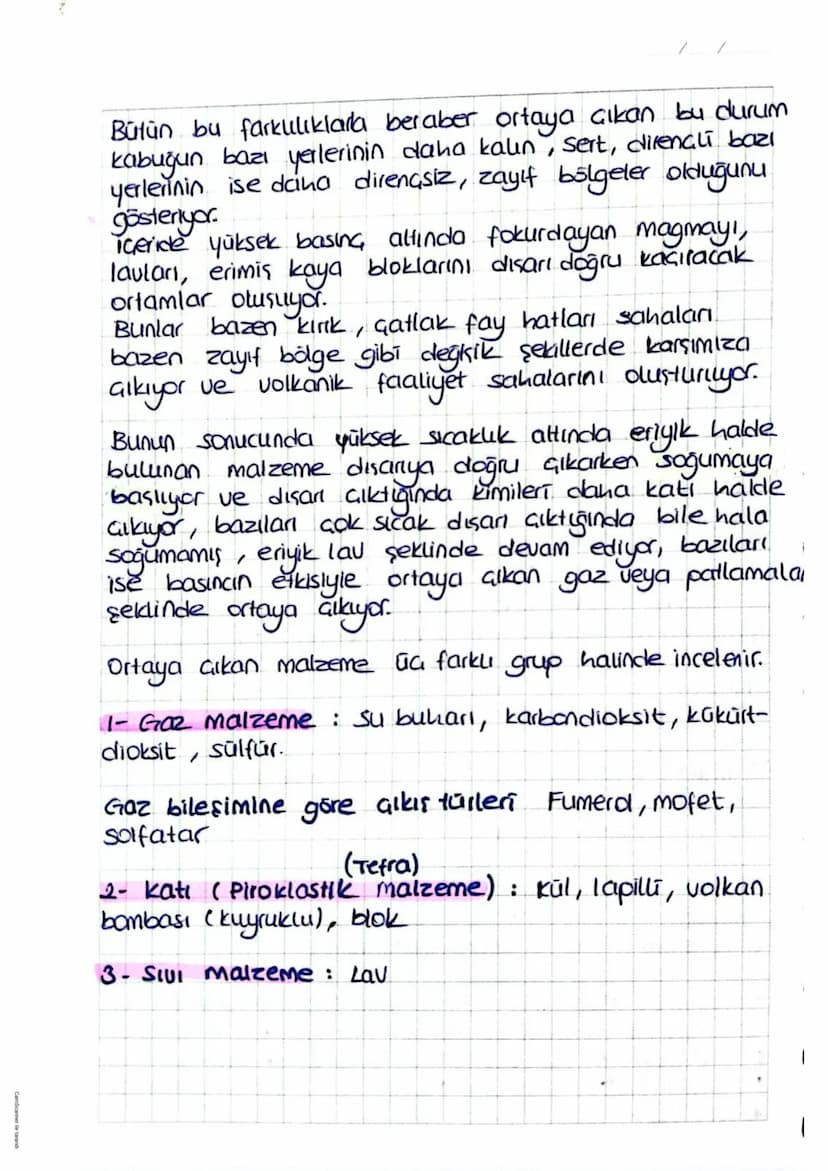 / /
Bütün bu farklılıklarla beraber ortaya çıkan bu durum
kabuğun bazı yerlerinin daha kalın, sert, dirençli bazı
yerlerinin ise daha dirençsiz, zayıf bölgeler olduğunu
gösteriyor.
İçeride yüksek basınç altında fokurdayan magmayı,
lavları, erimiş kaya bloklarını dışarı doğru kaçıracak
ortamlar oluşuyor.
Bunlar bazen kırık, çatlak fay hatları sahaları
bazen zayıf bölge gibi değişik şekillerde karşımıza
çıkıyor ve volkanik faaliyet sahalarını oluşturuyor.
Bunun sonucunda yüksek sıcaklık altında eriyik halde
bulunan malzeme dışarıya doğru çıkarken soğumaya
başlıyor ve dışarı çıktığında kimileri daha katı halde
çıkıyor, bazıları çok sıcak dışarı çıktığında bile hala
soğumamış, eriyik lav şeklinde devam ediyor, bazıları
ise basıncın etkisiyle ortaya çıkan gaz veya patlamala
şeklinde ortaya çıkıyor.
Ortaya çıkan malzeme üç farklı grup halinde incelenir.
1- Gaz malzeme : su buharı, karbondioksit, kükürt-
dioksit, sülfür.
Gaz bileşimine göre çıkış türleri Fumerol, mofet,
solfatar
(Tefra)
2- Katı (Piroklastik malzeme) : Kül, lapilli, volkan
bombası (kuyruklu), blok
3- Sıvı malzeme : Lav
CamScanner ile tarandı